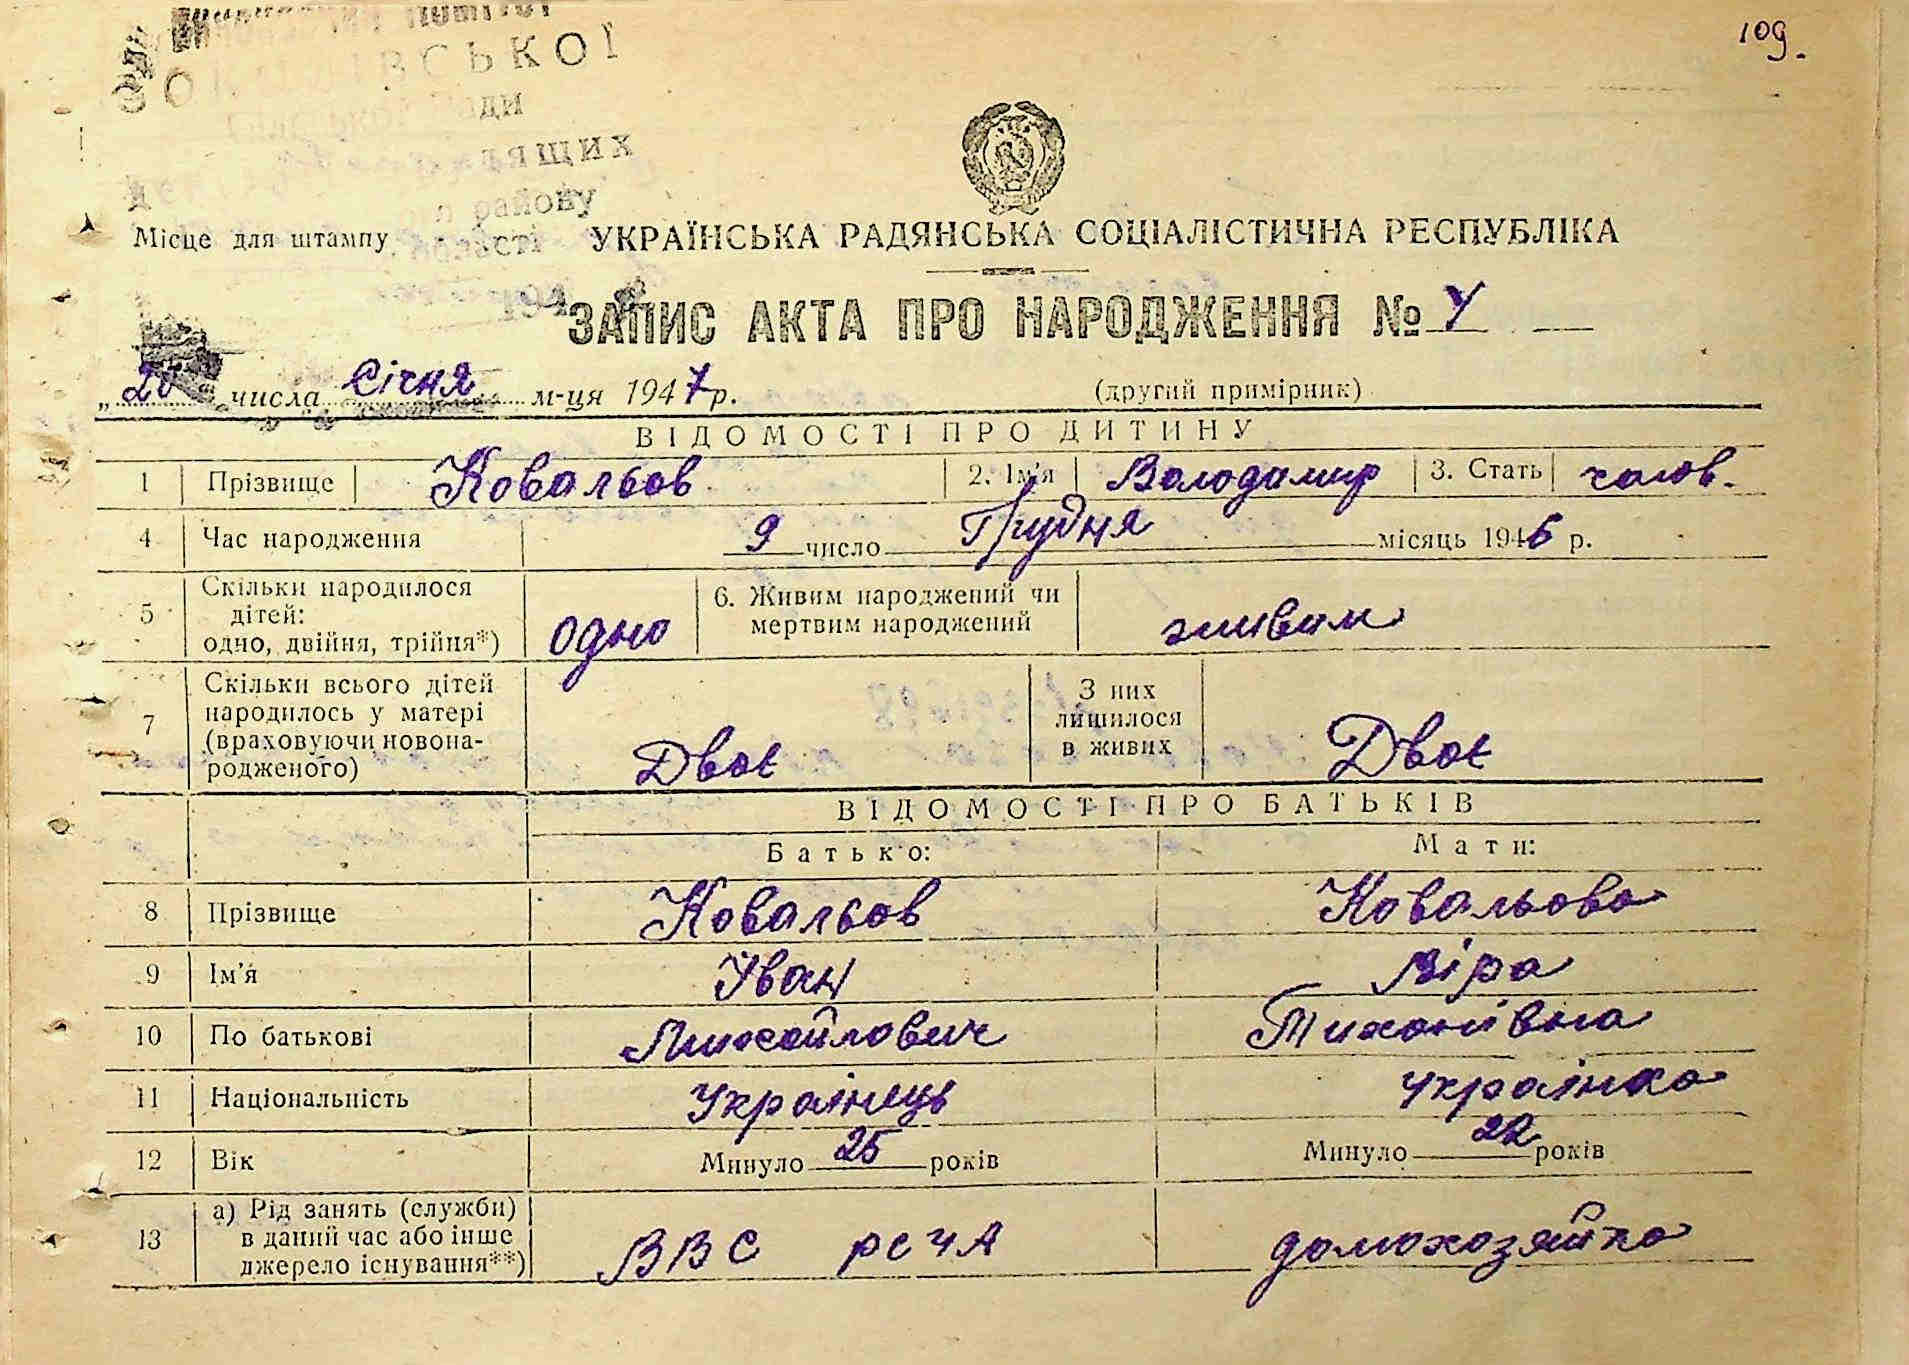 109.
ської
ради
дящих
району
області
Місце для штампу
УКРАЇНСЬКА РАДЯНСЬКА СОЦІАЛІСТИЧНА РЕСПУБЛІКА
ЗАПИС АКТА ПРО НАРОДЖЕННЯ № 4
„20 числа Січня м-ця 1947 р. (другий примірник)
ВІДОМОСТІ ПРО ДИТИНУ
1 Прізвище Ковальов 2. Ім'я Володимир 3. Стать чолов.
4 Час народження 9 число Грудня місяць 1946 р.
5 Скільки народилося дітей: одно, двійня, трійня*) одно 6. Живим народжений чи мертвим народжений живим
7 Скільки всього дітей народилось у матері (враховуючи новонародженого) Двоє З них лишилося в живих Двоє
ВІДОМОСТІ ПРО БАТЬКІВ
Батько: Мати:
8 Прізвище Ковальов Ковальова
9 Ім'я Іван Віра
10 По батькові Михайлович Тихонівна
11 Національність Українець Українка
12 Вік Минуло 25 років Минуло 22 років
13 а) Рід занять (служби) в даний час або інше джерело існування**) ВВС РСЧА домохозяйка